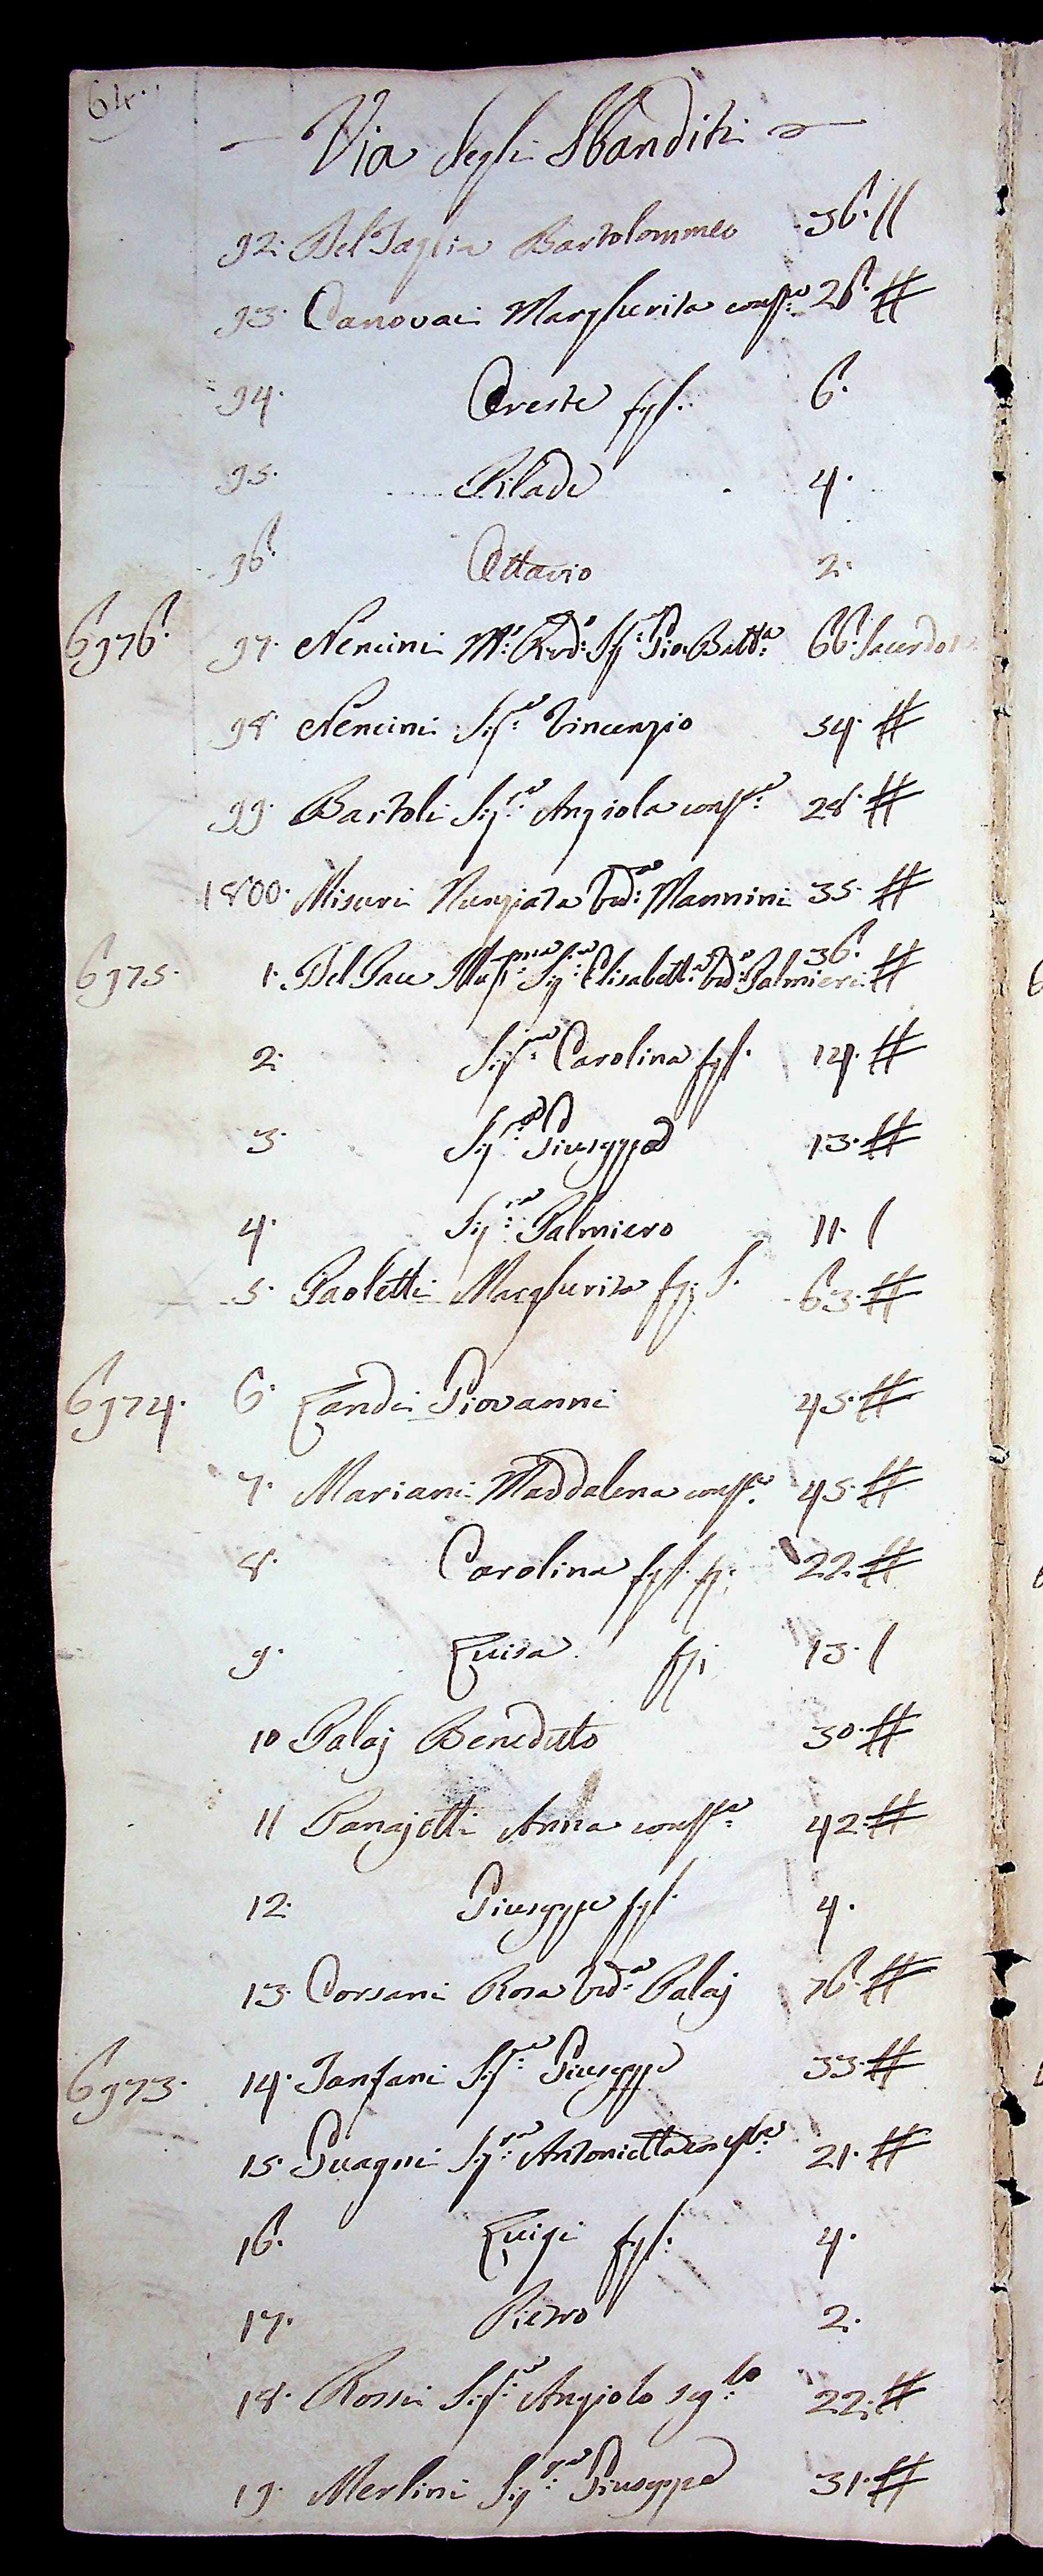 64.
Via degli Sbanditi
92. Del Taglia Bartolommeo 36. //
93. Canovai Margherita consp.e 26. #
94. Oreste figl. 6.
95. Pilade 4.
96. Ottavio 2.
6976. 97. Nencini M.o Rev.do Sig.r Gio: Batt.a 66. Sacerdo
98. Nencini Sig.re Vincenzio 54. #
99. Bartoli Sig.ra Angiola cons.e 28. #
1800. Misuri Nunziata Ved.a Mannini 35. #
6975. 1. Del Pace Illus.ma Sig.ra Elisabett.a Ved.a Palmieri 36. #
2. Sig.ra Carolina figl. 14. #
3. Sig.re Giuseppe 13. #
4. Sig.re Palmiero 11. /
5. Paoletti Margherita S. 63. #
6974. 6. Landi Giovanni 45. #
7. Mariani Maddalena cons.e 45. #
8. Carolina figl. 22. #
9. Luisa 13. /
10 Palaj Benedetto 30. #
11 Panajotti Anna cons.e 42. #
12. Giuseppe figl. 4.
13. Corsani Rosa Ved.a Palaj 76. #
6973. 14. Tanfani Sig.re Giuseppe 33. #
15. Guagni Sig.ra Antonietta cons.e 21. #
16. Luigi figl. 4.
17. Pietro 2.
18. Rossi Sig.re Angiolo seg.lo 22. #
19. Merlini Sig.re Giuseppe 31. #